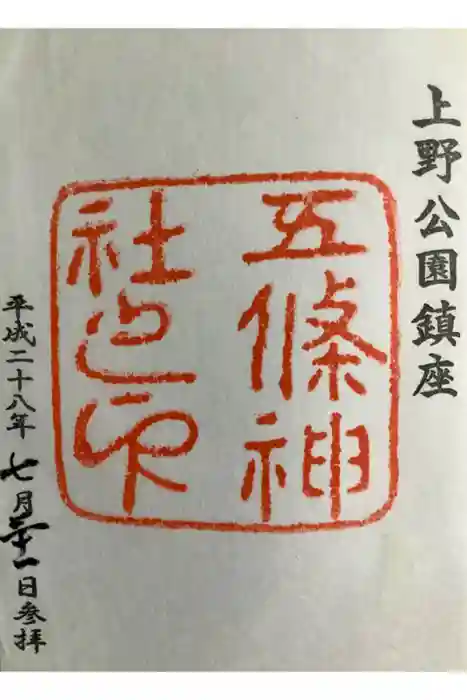 上野公園鎮座
五條神
社之印
平成二十八年七月二十一日参拝